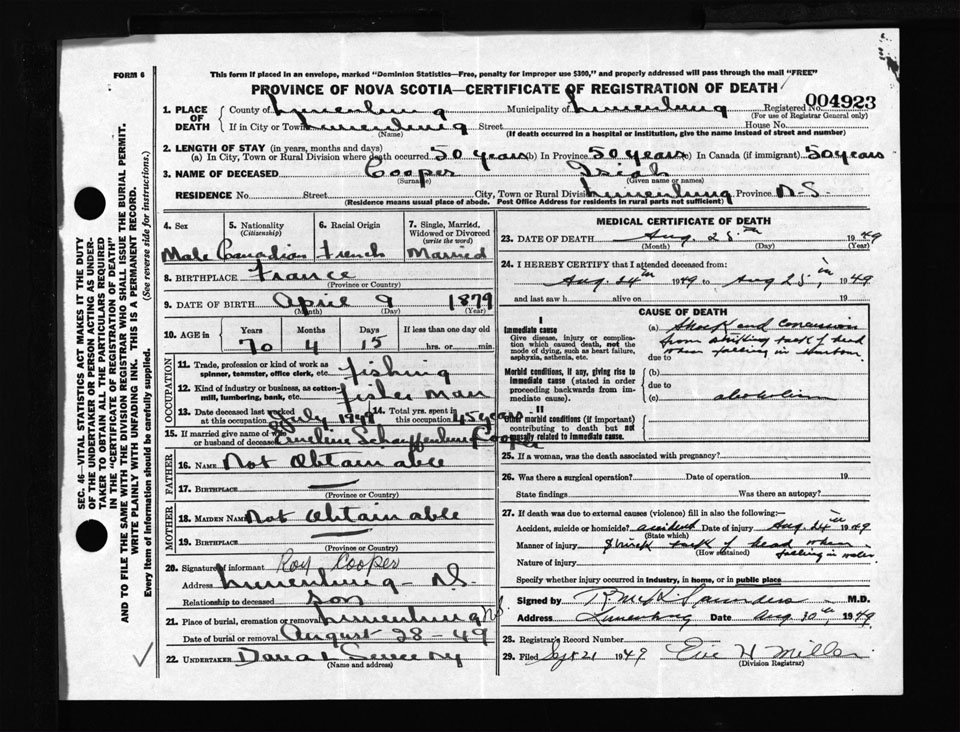 FORM 6
This form if placed in an envelope, marked "Dominion Statistics—Free, penalty for improper use $300," and properly addressed will pass through the mail "FREE"
PROVINCE OF NOVA SCOTIA—CERTIFICATE OF REGISTRATION OF DEATH
SEC. 46—VITAL STATISTICS ACT MAKES IT THE DUTY
OF THE UNDERTAKER OR PERSON ACTING AS UNDER-
TAKER TO OBTAIN ALL THE PARTICULARS REQUIRED
IN THE "CERTIFICATE OF REGISTRATION OF DEATH"
AND TO FILE THE SAME WITH THE DIVISION REGISTRAR WHO SHALL ISSUE THE BURIAL PERMIT.
WRITE PLAINLY WITH UNFADING INK. THIS IS A PERMANENT RECORD.
Every item of information should be carefully supplied. (See reverse side for instructions.)
1. PLACE OF DEATH
County of Lunenburg Municipality of Lunenburg Registered No. 004923
(For use of Registrar General only)
If in City or Town Lunenburg Street House No.
(Name) (If death occurred in a hospital or institution, give the name instead of street and number)
2. LENGTH OF STAY (in years, months and days)
(a) In City, Town or Rural Division where death occurred 50 years (b) In Province 50 years (c) In Canada (if immigrant) 50 years
3. NAME OF DECEASED Cooper Isiah
(Surname) (Given name or names)
RESIDENCE No. Street City, Town or Rural Division Lunenburg Province N.S.
(Residence means usual place of abode. Post Office Address for residents in rural parts not sufficient)
4. Sex 5. Nationality (Citizenship) 6. Racial Origin 7. Single, Married, Widowed or Divorced (write the word)
Male Canadian French Married
8. BIRTHPLACE France
(Province or Country)
9. DATE OF BIRTH April 9 1879
(Month) (Day) (Year)
10. AGE in Years Months Days If less than one day old
70 4 15 hrs. or min.
OCCUPATION
11. Trade, profession or kind of work as spinner, teamster, office clerk, etc. fishing
12. Kind of industry or business, as cotton-mill, lumbering, bank, etc. fisher man
13. Date deceased last worked at this occupation July 14. Total yrs. spent in this occupation 45 years
15. If married give name of wife or husband of deceased Cooper
FATHER
16. NAME Not Obtainable
17. BIRTHPLACE —
(Province or Country)
MOTHER
18. MAIDEN NAME Not Obtainable
19. BIRTHPLACE —
(Province or Country)
20. Signature of informant Roy Cooper
Address Lunenburg - N.S.
Relationship to deceased son
21. Place of burial, cremation or removal Lunenburg N.S.
Date of burial or removal August-28-49
22. UNDERTAKER
(Name and address)
MEDICAL CERTIFICATE OF DEATH
23. DATE OF DEATH Aug. 25th 1949
(Month) (Day) (Year)
24. I HEREBY CERTIFY that I attended deceased from:
Aug. 24th 1949 to Aug 25th, 1949
and last saw h alive on 19
CAUSE OF DEATH
I
Immediate cause
Give disease, injury or complication which caused death, not the mode of dying, such as heart failure, asphyxia, asthenia, etc.
(a) Shock and concussion
from striking back of head
due to when falling in Harbour
Morbid conditions, if any, giving rise to immediate cause (stated in order proceeding backwards from immediate cause).
(b)
due to
(c) alcoholism
II
Other morbid conditions (if important) contributing to death but not causally related to immediate cause.
25. If a woman, was the death associated with pregnancy?
26. Was there a surgical operation? Date of operation 19
State findings Was there an autopsy?
27. If death was due to external causes (violence) fill in also the following:—
Accident, suicide or homicide? accident Date of injury Aug. 24th 1949
(State which)
Manner of injury Struck back of head when
(How sustained) falling in water
Nature of injury
Specify whether injury occurred in industry, in home, or in public place
Signed by Saunders M.D.
Address Lunenburg Date Aug 30th, 1949
28. Registrar's Record Number
29. Filed Sept 21 1949 H Miller
(Division Registrar)